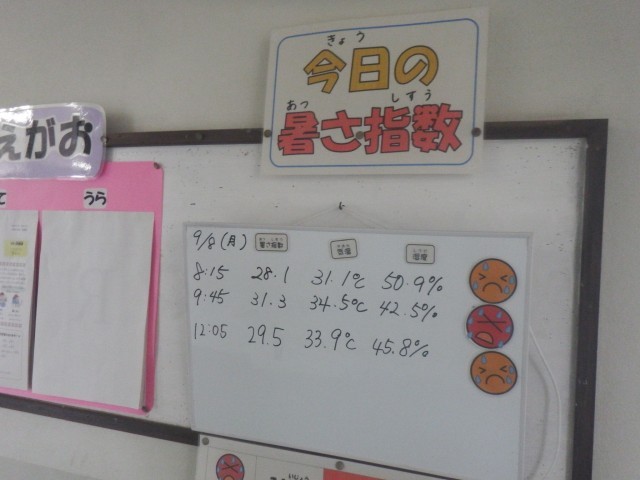 きょう
今日の
あつ しすう
暑さ指数
えがお
て
うら
9/8(月) 暑さ指数 気温 湿度
8:15 28.1 31.1℃ 50.9%
9:45 31.3 34.5℃ 42.5%
12:05 29.5 33.9℃ 45.8%